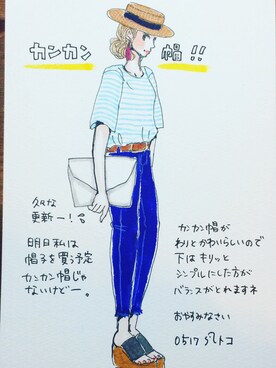 カンカン帽!!
久々な
更新ー!
明日私は
帽子を買う予定
カンカン帽じゃ
ないけどー。
カンカン帽が
わりとかわいらしいので
下はキリッと
シンプルにした方が
バランスがとれますネ
おやすみなさい
0517